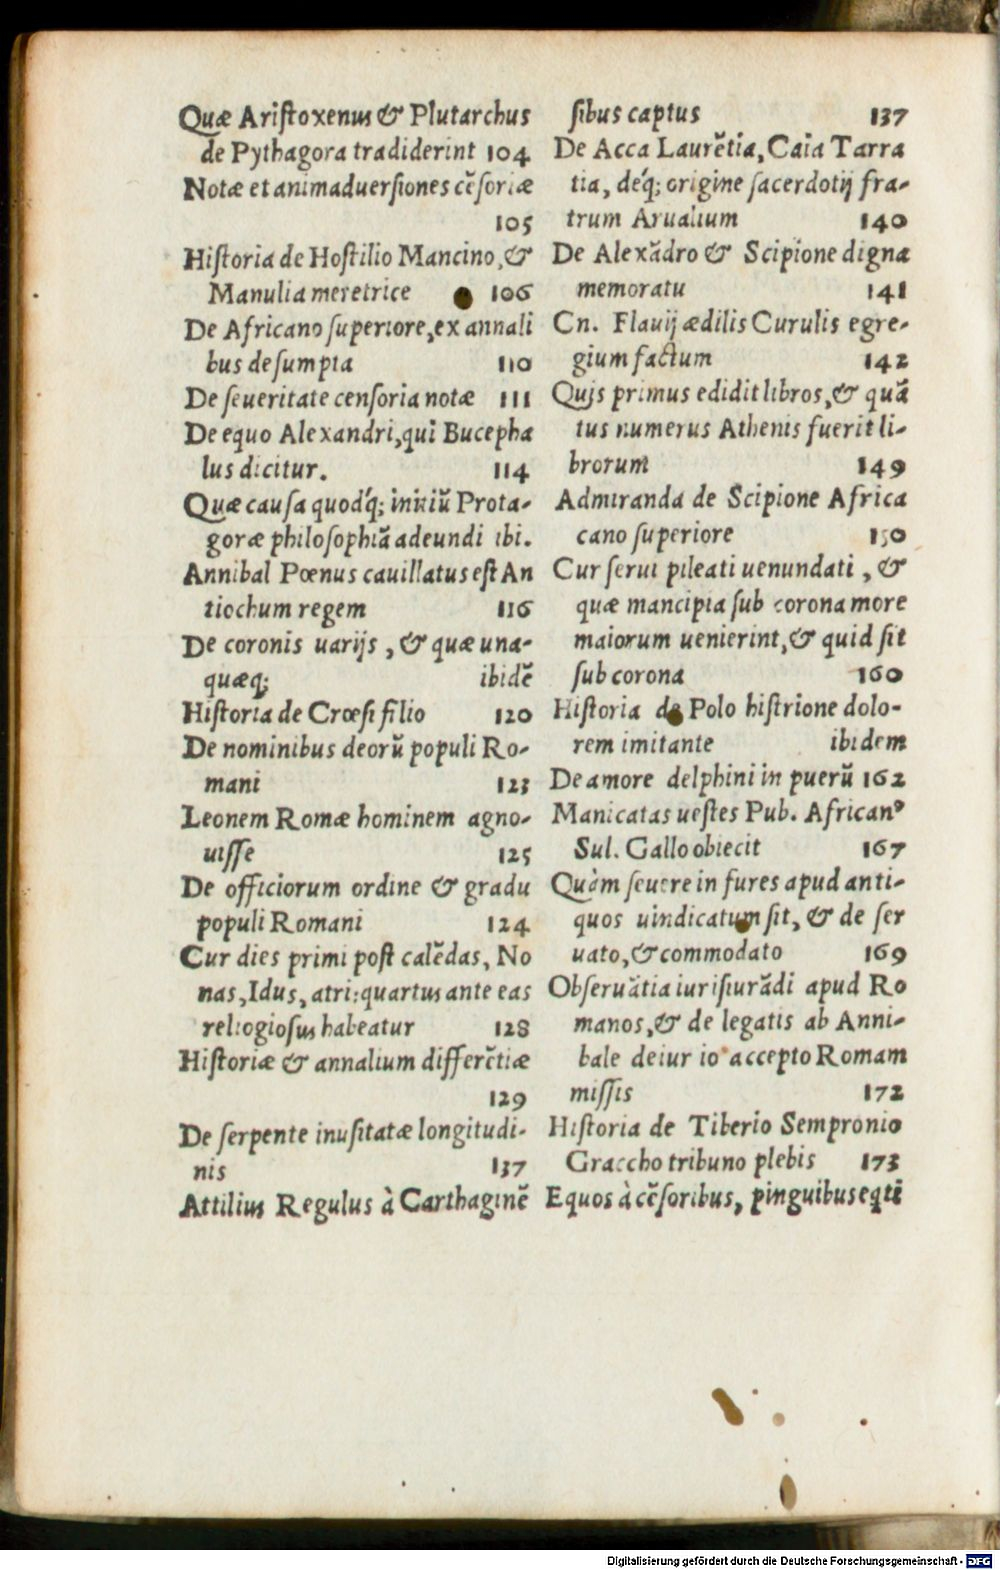 Quæ Aristoxenus & Plutarchus
de Pythagora tradiderint 104
Notæ et animaduersiones cẽsoriæ
105
Historia de Hostilio Mancino, &
Manulia meretrice 106
De Africano superiore, ex annali
bus desumpta 110
De seueritate censoria notæ 111
De equo Alexandri, qui Bucepha
lus dicitur. 114
Quæ causa quodq́; initiũ Prota-
goræ philosophiã adeundi ibi.
Annibal Pœnus cauillatus est An
tiochum regem 116
De coronis uarijs, & quæ una-
quæq; ibidẽ
Historia de Crœsi filio 120
De nominibus deorũ populi Ro-
mani 123
Leonem Romæ hominem agno-
uisse 125
De officiorum ordine & gradu
populi Romani 124
Cur dies primi post calẽdas, No
nas, Idus, atri: quartus ante eas
religiosus habeatur 128
Historiæ & annalium differẽtiæ
129
De serpente inusitatæ longitudi-
nis 137
Attilius Regulus à Carthaginẽ
sibus captus 137
De Acca Laurẽtia, Caia Tarra
tia, deq́; origine sacerdotij fra-
trum Arualium 140
De Alexãdro & Scipione digna
memoratu 141
Cn. Flauij ædilis Curulis egre-
gium factum 142
Quis primus edidit libros, & quã
tus numerus Athenis fuerit li-
brorum 149
Admiranda de Scipione Africa
cano superiore 150
Cur serui pileati uenundati, &
quæ mancipia sub corona more
maiorum uenierint, & quid sit
sub corona 160
Historia de Polo histrione dolo-
rem imitante ibidem
De amore delphini in puerũ 162
Manicatas uestes Pub. Africanꝰ
Sul. Gallo obiecit 167
Quàm seuere in fures apud anti-
quos uindicatum sit, & de ser
uato, & commodato 169
Obseruãtia iurisiurãdi apud Ro
manos, & de legatis ab Anni-
bale deiur io accepto Romam
missis 172
Historia de Tiberio Sempronio
Graccho tribuno plebis 173
Equos à cẽsoribus, pinguibus eqti
Digitalisierung gefördert durch die Deutsche Forschungsgemeinschaft - DFG